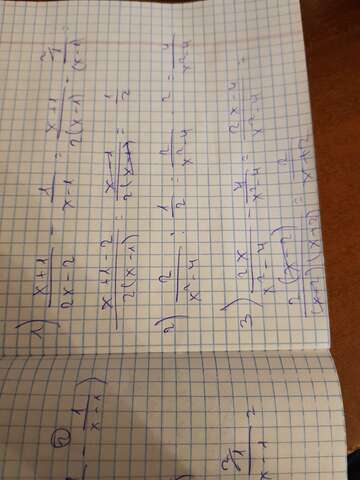 1) (x+1)/(2x-2) - 1/(x-1) = (x+1)/(2(x-1)) - 2/1/(x-1)
(x+1-2)/(2(x-1)) = (x-1)/(2(x-1)) = 1/2
2) 2/(x²-4) : 1/2 = 2/(x²-4) · 2 = 4/(x²-4)
3) 2x/(x²-4) - 4/(x²-4) = (2x-4)/(x²-4) =
2(x-2)/((x-2)(x+2)) = 2/(x+2)